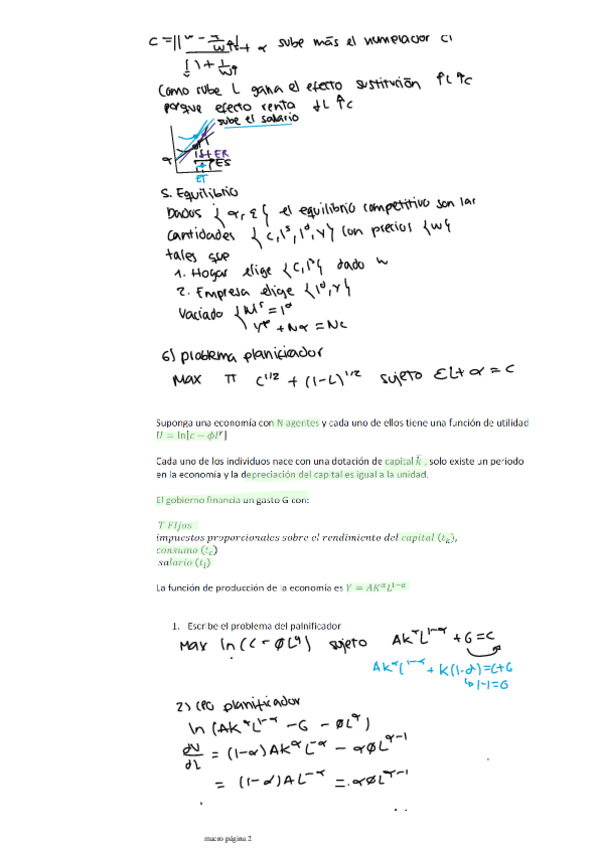 sube más el numerador
Como sube L gana el efecto sustitución ↑L ↑c
porque efecto renta ↓L ↑c
sube el salario
ER
ES
ET
5. Equilibrio
Dados {α, ε} el equilibrio competitivo son las
cantidades {c, lˢ, lᵈ, y} con precios {w}
tales que
1. Hogar elige {c, lˢ} dado w
2. Empresa elige {lᵈ, Y}
Vaciado {Nlˢ = lᵈ
yˢ + Nα = Nc
6) problema planificador
Max π c^{1/2} + (1-L)^{1/2} sujeto εL + α = c
Suponga una economía con N agentes y cada uno de ellos tiene una función de utilidad
U = ln[c − ϕlᵞ]
Cada uno de los individuos nace con una dotación de capital k̄ , solo existe un periodo
en la economía y la depreciación del capital es igual a la unidad.
El gobierno financia un gasto G con:
T Fijos
impuestos proporcionales sobre el rendimiento del capital (tₖ),
consumo (t_c)
salario (t_l)
La función de producción de la economía es Y = AKᵅL¹⁻ᵅ
1. Escribe el problema del palnificador
Max ln(C - ØLᵅ) sujeto AkᵅL¹⁻ᵅ + G = C
AkᵅL¹⁻ᵅ + k(1-α) = C + G
↳ 1-1=G
2) CPO planificador
ln (AKᵅL¹⁻ᵅ - G - ØLᵅ)
dU/dL = (1-α)AKᵅL⁻ᵅ - αØLᵅ⁻¹
= (1-α)AL⁻ᵅ = αØLᵅ⁻¹
macro página 2